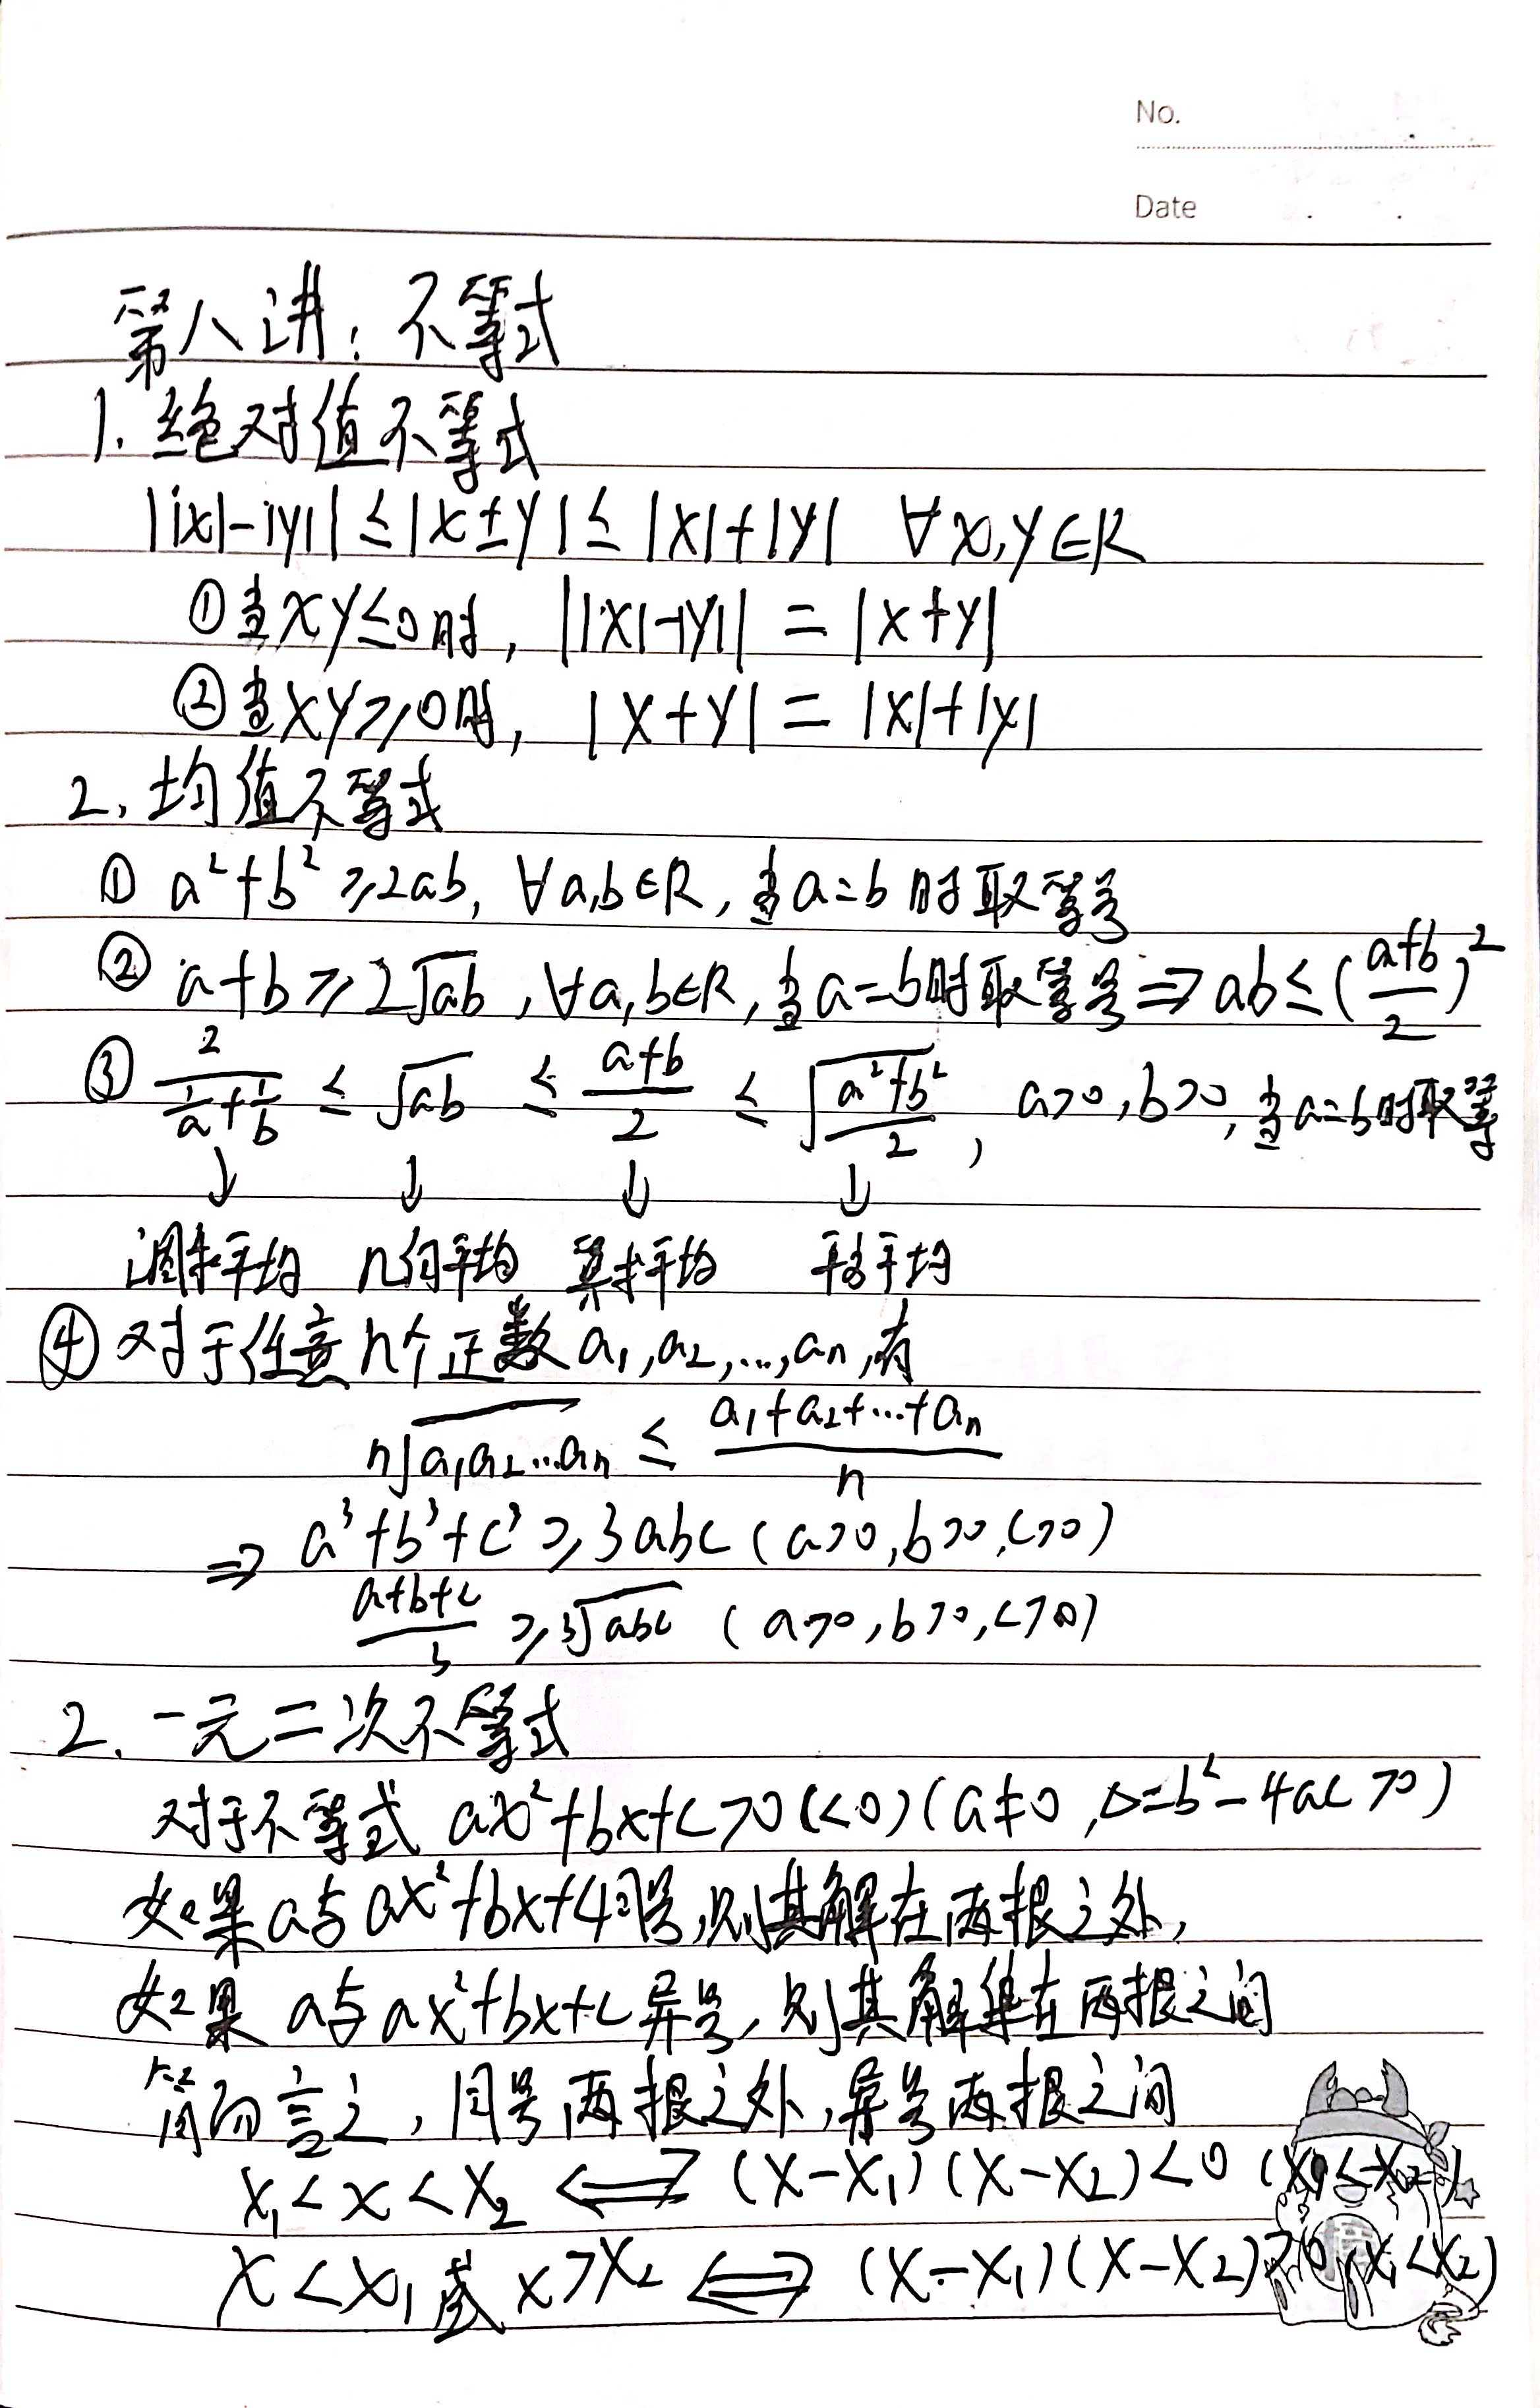 No.
Date
第八讲：不等式
1. 绝对值不等式
||x|-|y|| ≤ |x±y| ≤ |x|+|y| ∀x,y∈R
①当xy≤0时, ||x|-|y|| = |x+y|
②当xy≥0时, |x+y| = |x|+|y|
2. 均值不等式
① a²+b²≥2ab, ∀a,b∈R, 当a=b时取等号
② a+b≥2√ab, ∀a,b∈R, 当a=b时取等号⇒ab≤(a+b/2)²
③ 2/(1/a+1/b) ≤ √ab ≤ (a+b)/2 ≤ √(a²+b²/2), a>0,b>0, 当a=b时取等
↓ ↓ ↓ ↓
调和平均 几何平均 算术平均 平方平均
④ 对于任意n个正数a₁,a₂,...,aₙ,有
ⁿ√a₁a₂...aₙ ≤ (a₁+a₂+...+aₙ)/n
⇒ a³+b³+c³≥3abc (a>0,b>0,c>0)
(a+b+c)/3 ≥ ³√abc (a>0,b>0,c>0)
2. 一元二次不等式
对于不等式 ax²+bx+c>0(<0)(a≠0,Δ=b²-4ac>0)
如果a与ax²+bx+c同号,则其解在两根之外,
如果a与ax²+bx+c异号,则其解集在两根之间
简而言之,同号两根之外,异号两根之间
x₁<x<x₂ ⟺ (x-x₁)(x-x₂)<0 (x₁<x₂)
x<x₁或x>x₂ ⟺ (x-x₁)(x-x₂)>0(x₁<x₂)